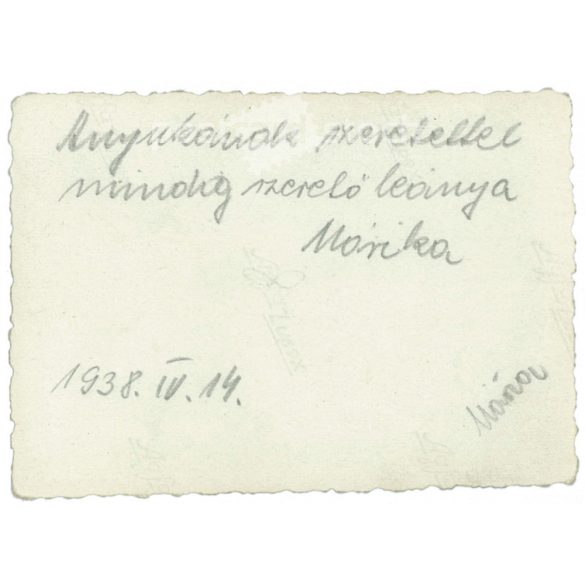 Anyukának szeretettel
mindég szerető leánya
Márika
1938. IV. 14.
Mária